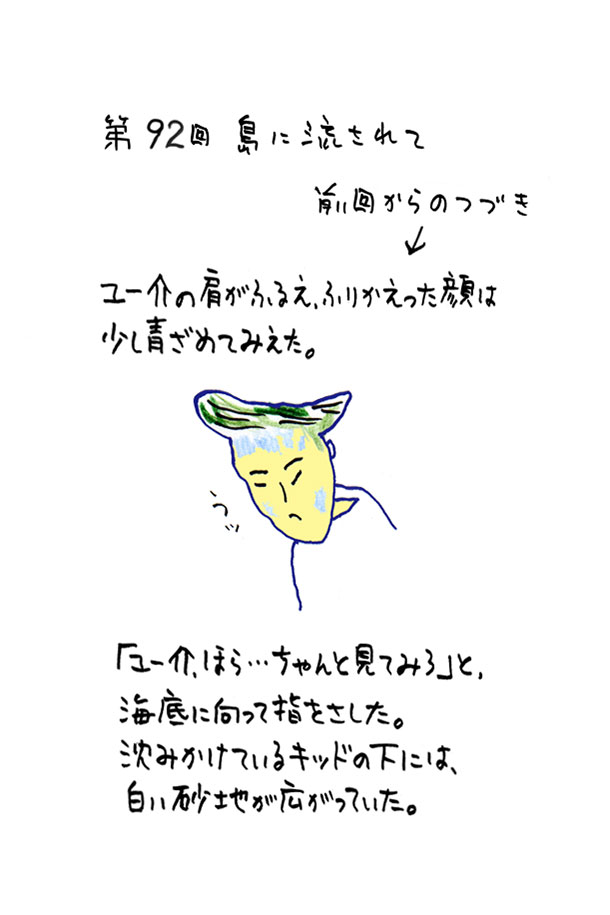 第92回 島に流されて
前回からのつづき
ユー介の肩がふるえ、ふりかえった顔は
少し青ざめてみえた。
うッ
「ユー介、ほら…ちゃんと見てみろ」と、
海底に向って指をさした。
沈みかけているキッドの下には、
白い砂地が広がっていた。